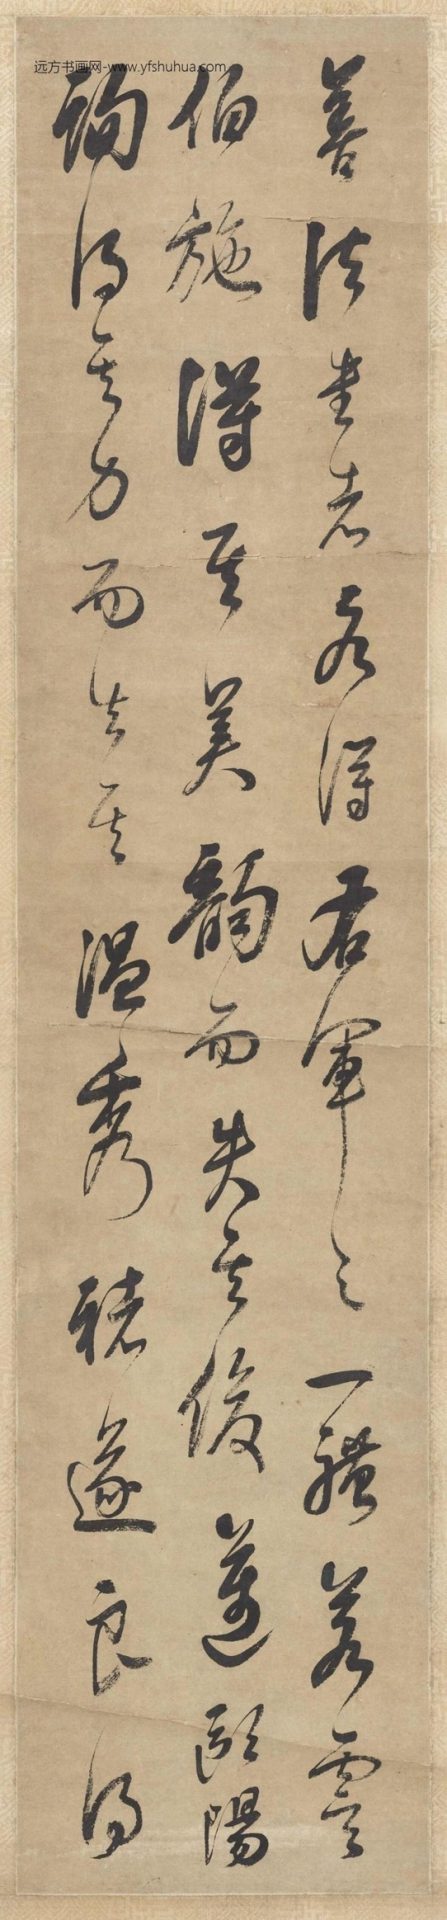 远方书画网-www.yfshuhua.com
善法書者各得右軍之一體若虞
伯施得其美韻而失其俊邁歐陽
詢得其力而失其溫秀褚遂良得